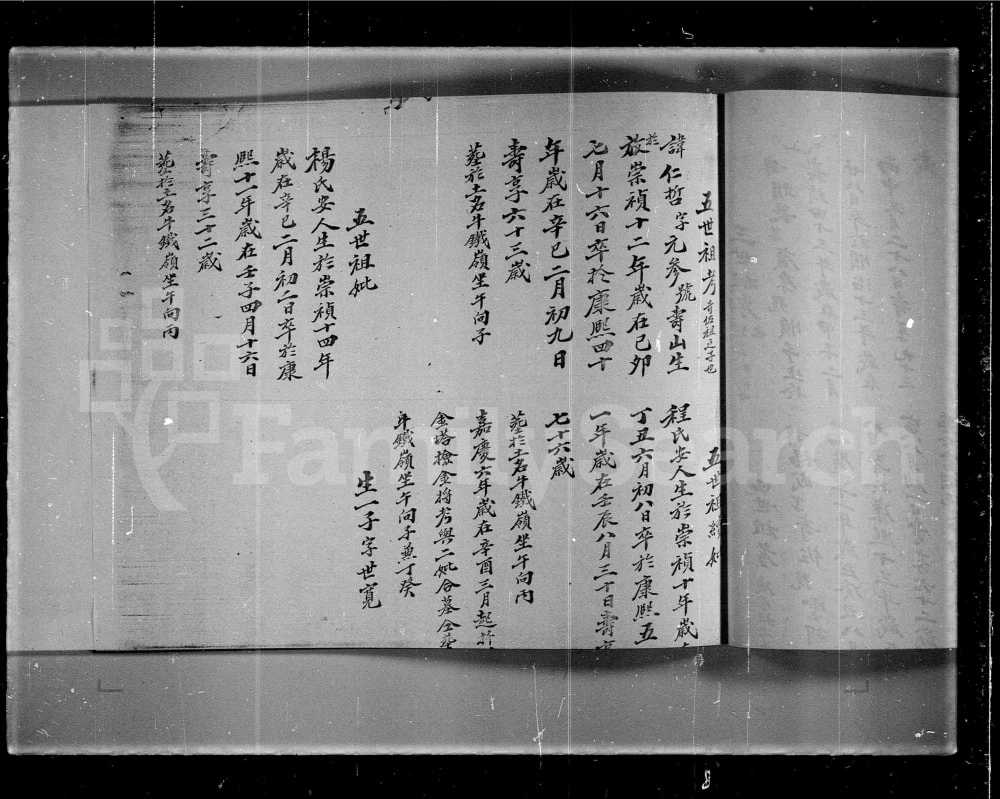 五世祖考
諱仁哲字元參號壽山生
於
放崇禎十二年歲在己卯
七月十六日卒於康熙四十
年歲在辛巳二月初九日
壽享六十三歲
塟於土名牛鐵嶺坐午向子
五世祖妣
楊氏安人生於崇禎十四年
歲在辛巳二月初二日卒於康
熙十一年歲在壬子四月十六日
壽享三十二歲
塟於土名牛鐵嶺坐午向丙
五世祖繼妣
程氏安人生於崇禎十年歲
丁丑六月初八日卒於康熙五
一年歲在壬辰八月三十日壽享
七十六歲
塟於土名牛鐵嶺坐午向丙
嘉慶六年歲在辛酉三月起於
金塔撿金將考與二妣合墓全塟
牛鐵嶺坐午向子兼丁癸
生一子字世寬
FamilySearch